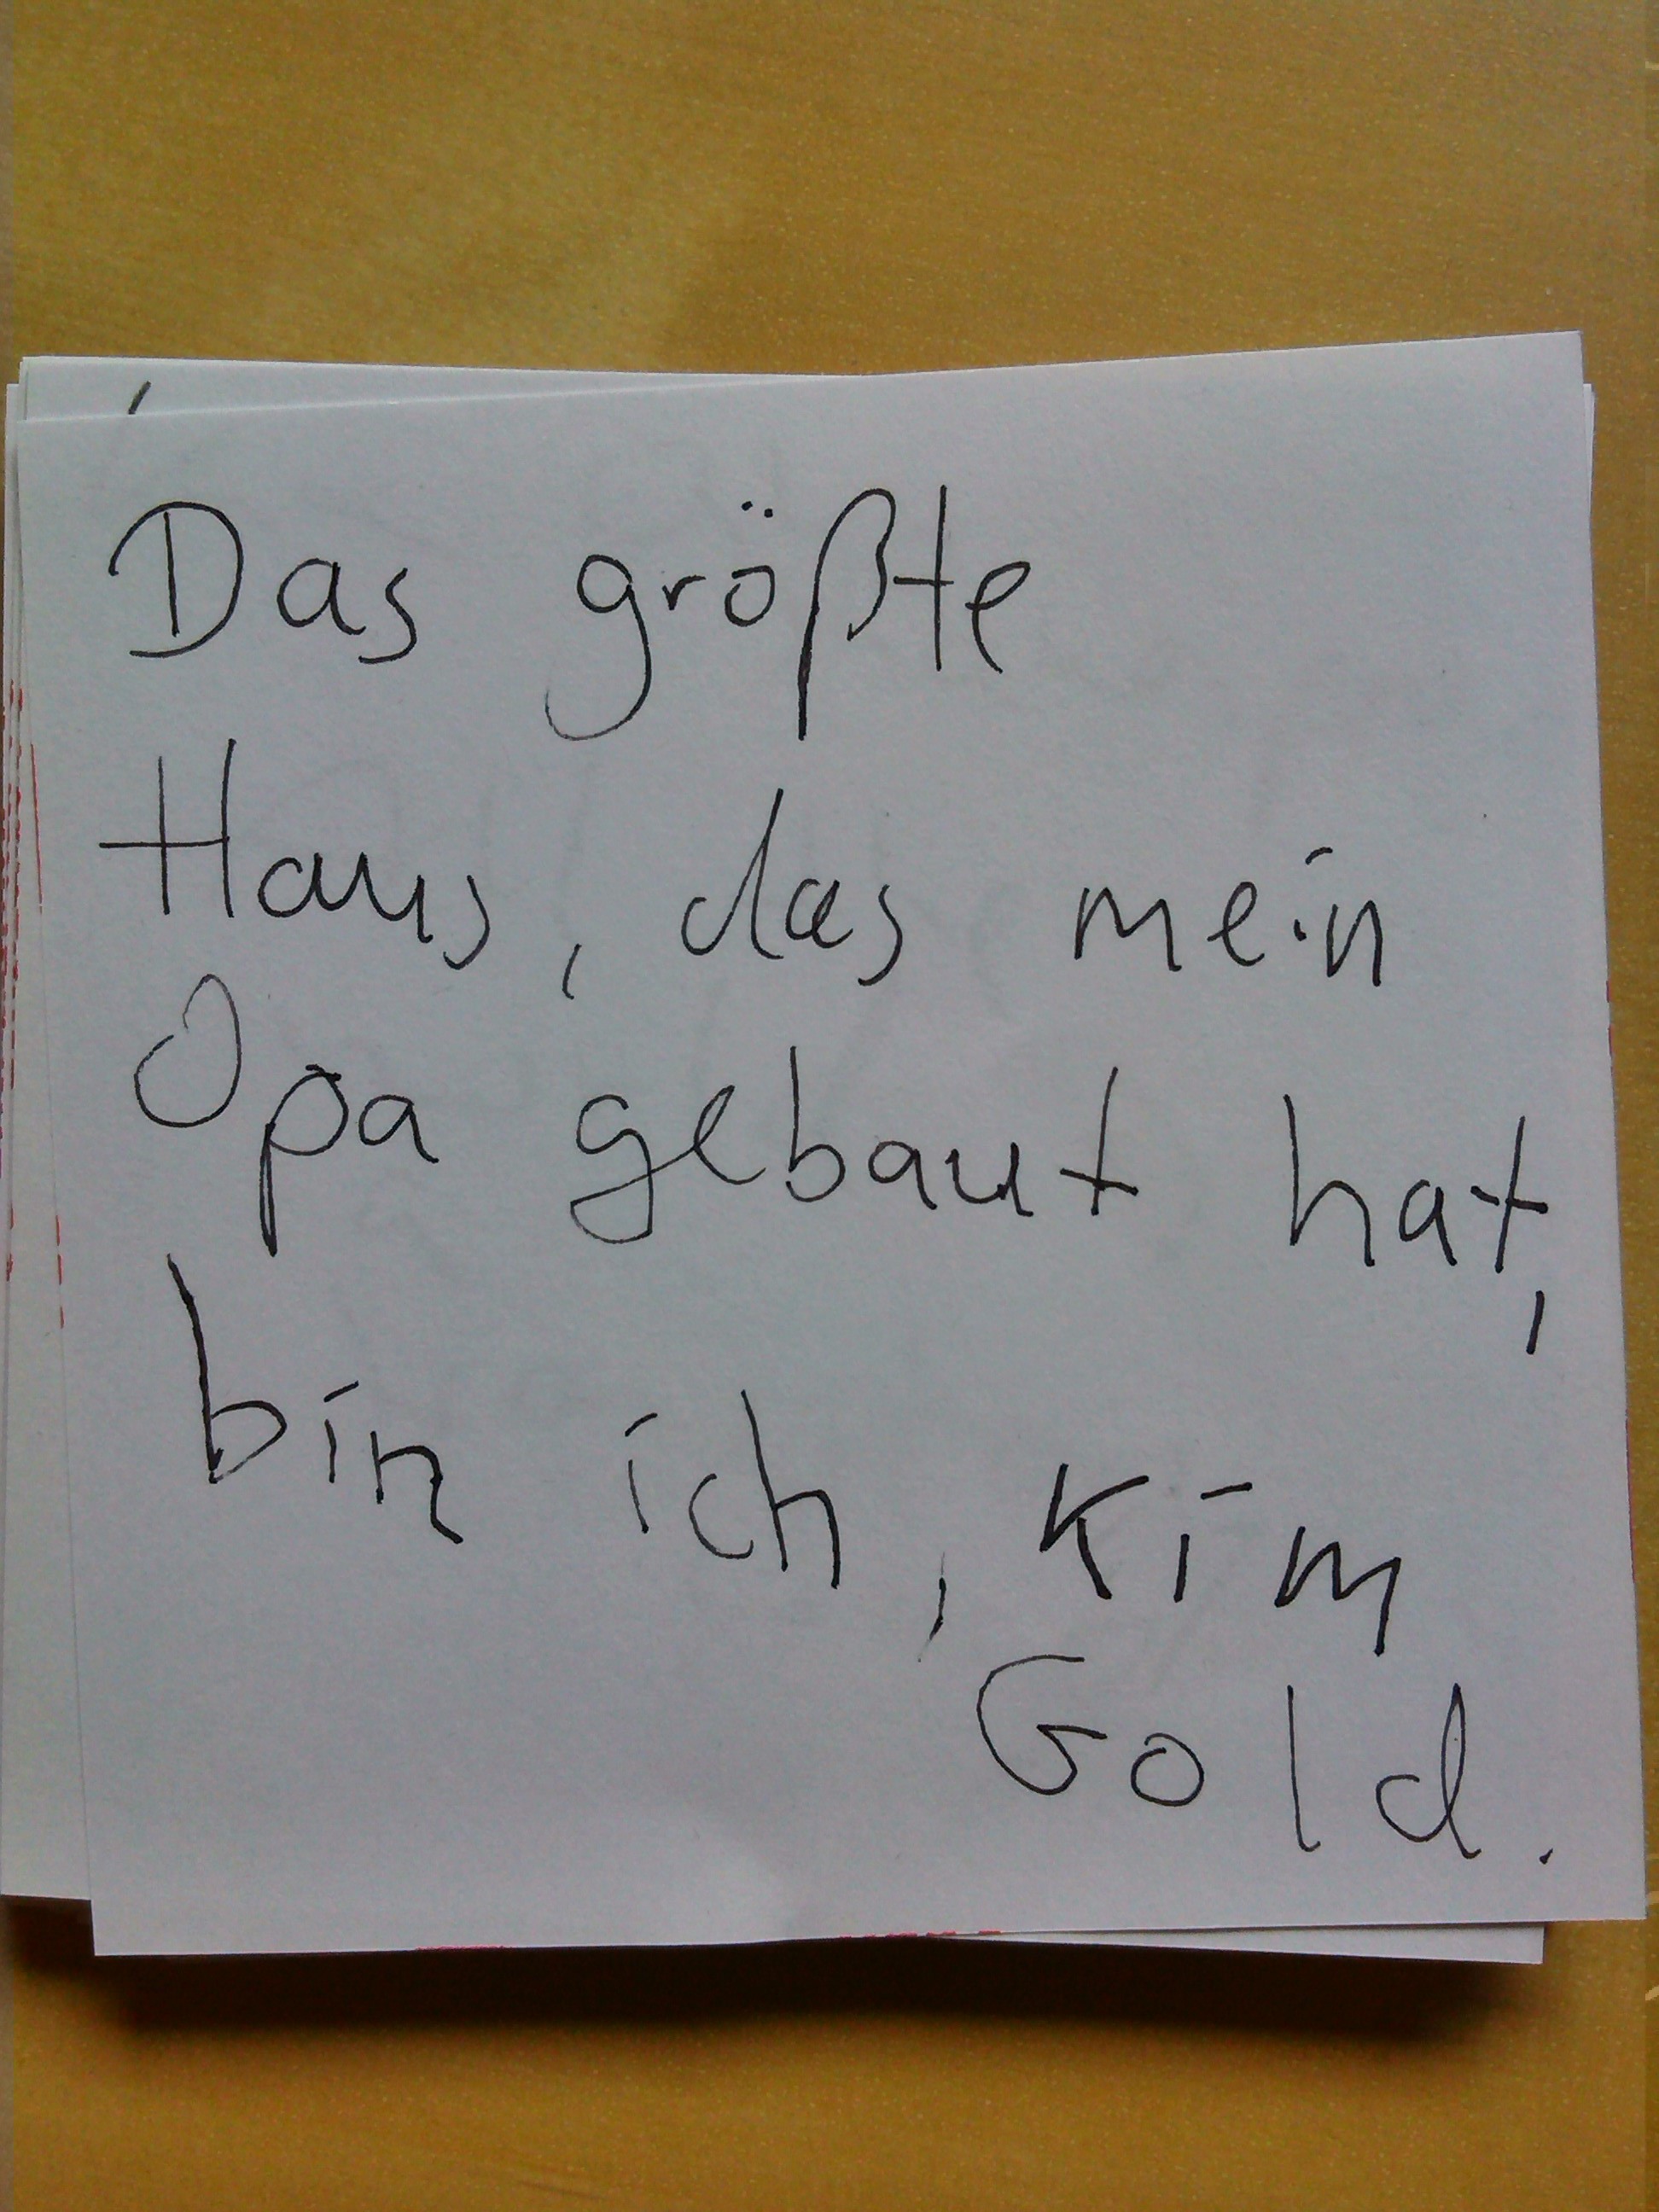 Das größte
Haus, das mein
Opa gebaut hat,
bin ich, Kim
Gold.